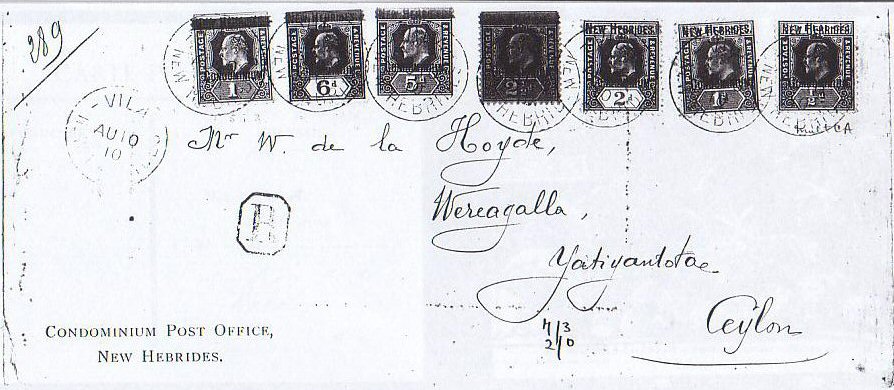 289
NEW HEBRIDES. NEW HEBRIDES. NEW HEBRIDES.
POSTAGE REVENUE POSTAGE REVENUE POSTAGE REVENUE POSTAGE REVENUE POSTAGE REVENUE POSTAGE REVENUE
1/- 6d 5d 2½d 2d 1d ½d
VILA
AU 10
10
HEBRIDES
Mr W. de la Hoyde,
Wereagalla,
Yatiyantotae
Ceÿlon
R
4/3
2/0
CONDOMINIUM POST OFFICE,
NEW HEBRIDES.